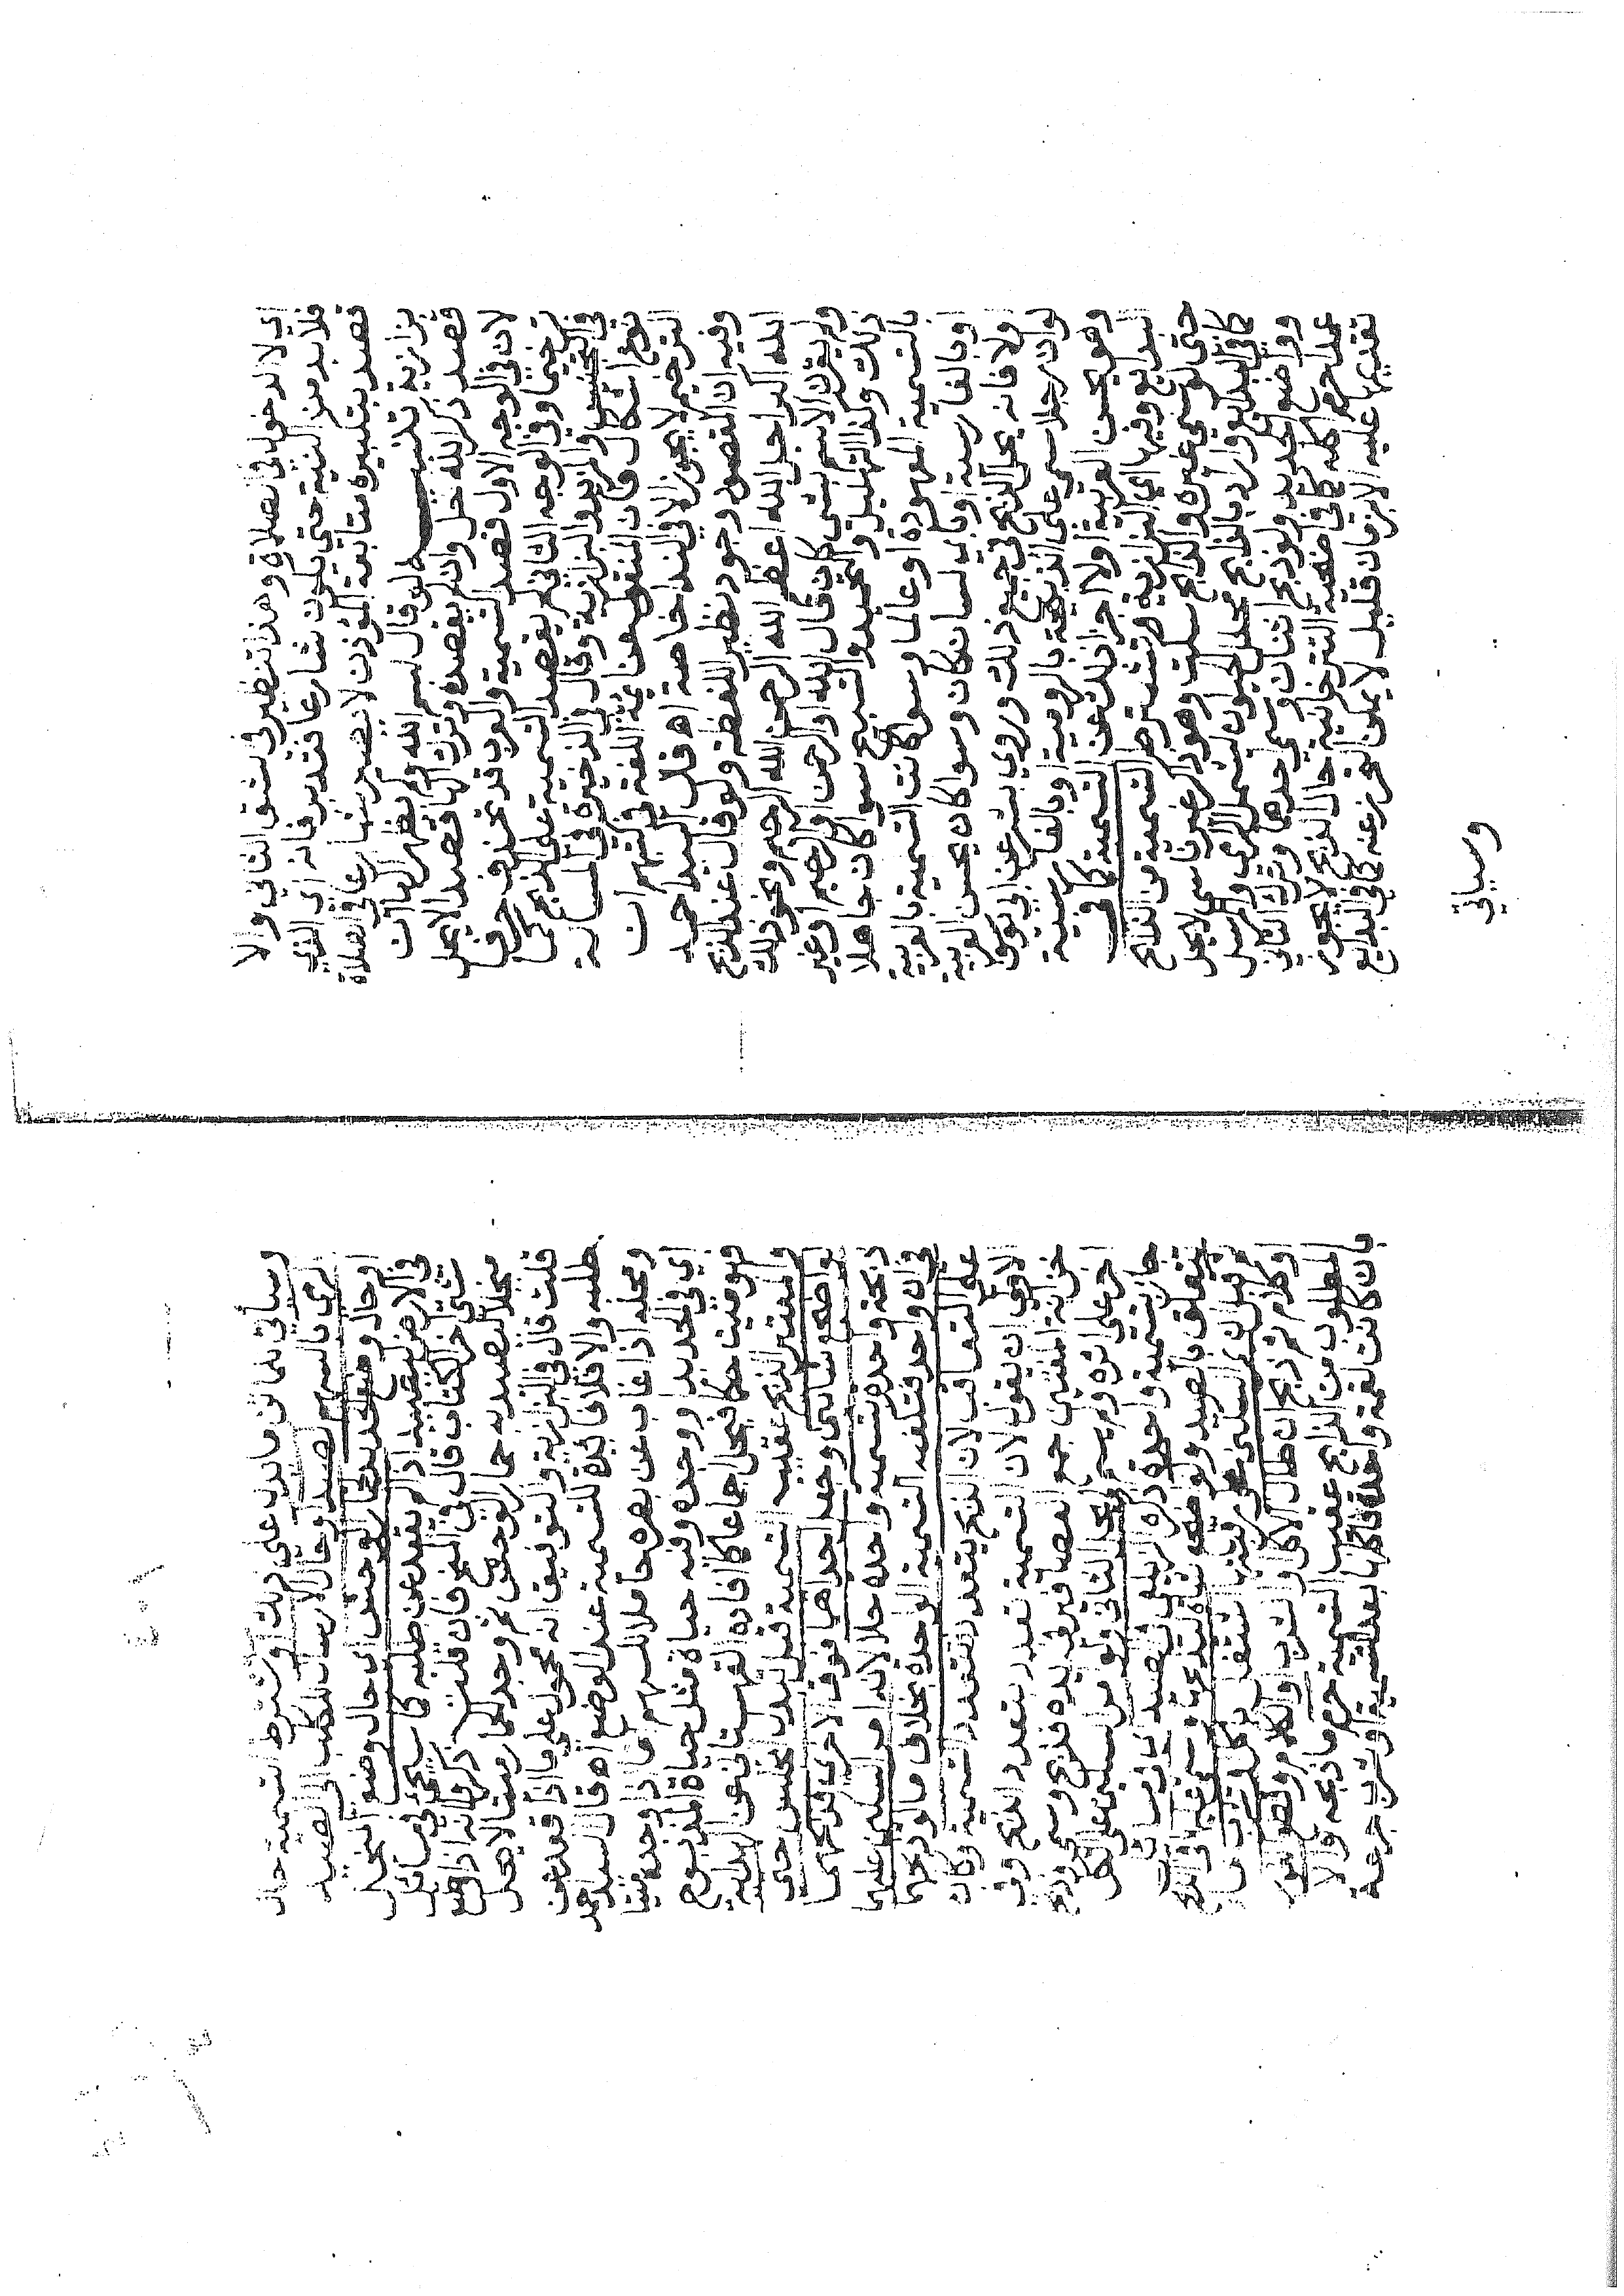 اي لا لدخوله في الصلاة وهذا تنظير في شق الثاني والا
فلا بد من النية حتى يكون شارعا فتدبر فانه اى الذي
قصد بتكبيره متابعة المؤذن لا يصير شارعا في الصلاة
بزازية تنبيه لو قال بسم الله ولم يظهر الهاء ان
قصد ذكر الله حل وان لم يقصده وترك الهاء قصدا لا يحل
لان في الوجه الاول قصد التسمية والعرب قد تحذف حرفا
ترخيما وفي الوجه الثاني لم يقصد التسمية على الذبح كما
في التجنيس والمزيد والبزازية وقال في الذخيرة في المسالة
نوع اشكال فان المنقول عن ائمة اللغة في كتبهم ان
الترخيم لا يجوز الا في الندا خاصة اه قال السيد احمد
وفيه ان المقصود وجود نظير للفظه ولو قال عند الذبح
الله اكبر او اجل الله او اعظم الله الرحمن الله الرحيم ونحو ذلك
ولم يقرن الاسم بشى كان قال الله او الرحمن او الرحيم او غير
ذلك وكذا التهليل والتحميد والتسبيح سوا كان جاهلا
بالتسمية المعهودة او عالما وسوا كانت التسمية بالعربية
او بالفارسية او باي لسان كان وسوا كان يحسن العربية
اولا فانه يحل الذبح في جميع ذلك وروي بشر عن ابي يوسف
لو ان رجلا سمى على الذبيحة بالرومية او بالفارسية
وهو يحسن العربية اولا اجزا ذلك عن التسمية كما في
البدايع وفيها اي البزازية وتشترط التسمية من الذابح
حتى لو سمى غيره والذابح ساكت وهو ذاكر غير ناسي لا يحل
كما في البدايع واراد بالذابح محلل الحيوان ليشمل الرامي والمرسل
وواضع الحديد ولو ذبح اثنان وسمى احدهما وترك الثاني
عمدا حرم اكله كما في اضحية التترخانية حال الذبح لا يجوز
تقديمها عليه الا بزمان قليل لا يمكن التحرز عنه كما في البدايع
وسياتي
وسيأتي بيان ما يدل على ذلك او تشترط التسمية حال
الرمي بالسهم لصيد او حال الارسال للكلب الى الصيد
او حال وضع الحديد لحمار الوحش اى حال وضع المنجل
في الارض ليصيد اذا لم يقعد عن طلبه كما سيجئ في مسائل
شتى اخر الكتاب قال في المنح فان قلت ذكروا انه اذا وضع
منجلا ليصيد به حمار الوحش ثم وجد الحمار ميتا لا يحل
قلت قال في البزازية والتوفيق انه محمول على ما اذا قعد عن
طلبه والا فلا فايدة للتسمية عند الوضع اه قال السيد احمد
ومحله اذا غاب عن بصره حاملا السهم اما اذا وجده ميتا
اي في الحديد او وجده وفيه حياة مثل حياة المذبوح
فهو ميت حكما فيحل اجماعا كما افاده القهستاني عن الهدايه
والمعتبر الذبح عقيب التسمية قبل تبدل المجلس حتى
لو اضجع شاتين وجعل احداهما فوق الاخرى فذبحهما
ذبحة واحدة بتسمية واحده حلا لانه امر السكين عليهما
في ان واحد فتكفيه التسمية الواحدة بخلاف ما لو ذبحهما
على التعاقب لان الذبح يتعدد فتتعدد التسمية وكان
الاولى ان يقول لان التسمية تتعدد بتعدد الذبح وفي
خزانة المفتين جمع العصافير في يده فذبح وسمى وذبح
اخر على اثره ولم يسم لم يحل الثاني ولو امر السكين على الكل
جاز بتسمية واحدة ذكره الزيلعي في الصيد اى ذكر ما
يتعلق بالصيد ولو اضجع شاة ليذبحها وسمى عليها والذبح
قبل ان يمر السكين على رقبتها اشتغل باكل او شرب
او كلام ثم ذبح ان طال الاكل او الشرب والكلام وقطع الفور
المطلوب من الذابح عقيب التسمية حرم ما ذبحه والا
بان كانت لقمة واحدة فاكلها بعد التسمية او شرب جرعة